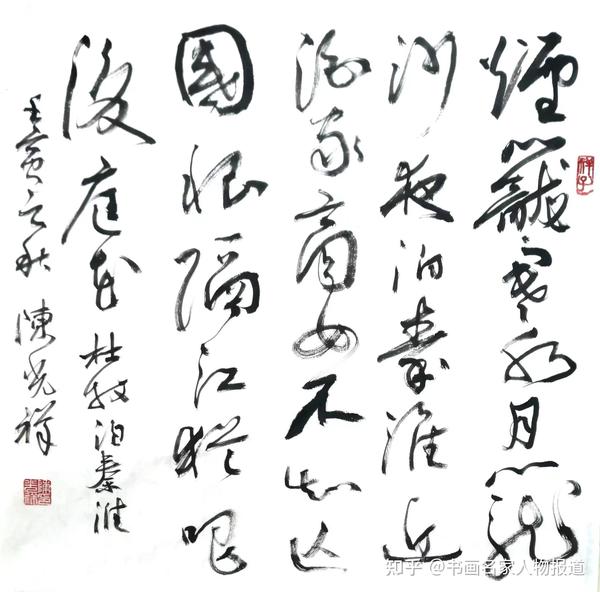 煙籠寒水月籠
沙夜泊秦淮近
酒家商女不知亡
國恨隔江猶唱
後庭花 杜牧泊秦淮
壬寅秋 陳光祥
知乎 @书画名家人物报道